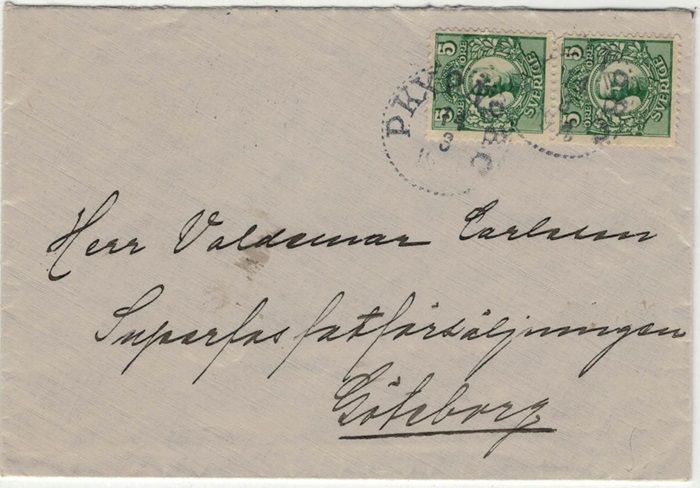 5 ÖRE SVERIGE 5
5 ÖRE SVERIGE 5
PKXP
Herr Valdemar Carlsson
Superfosfatförsäljningen
Göteborg